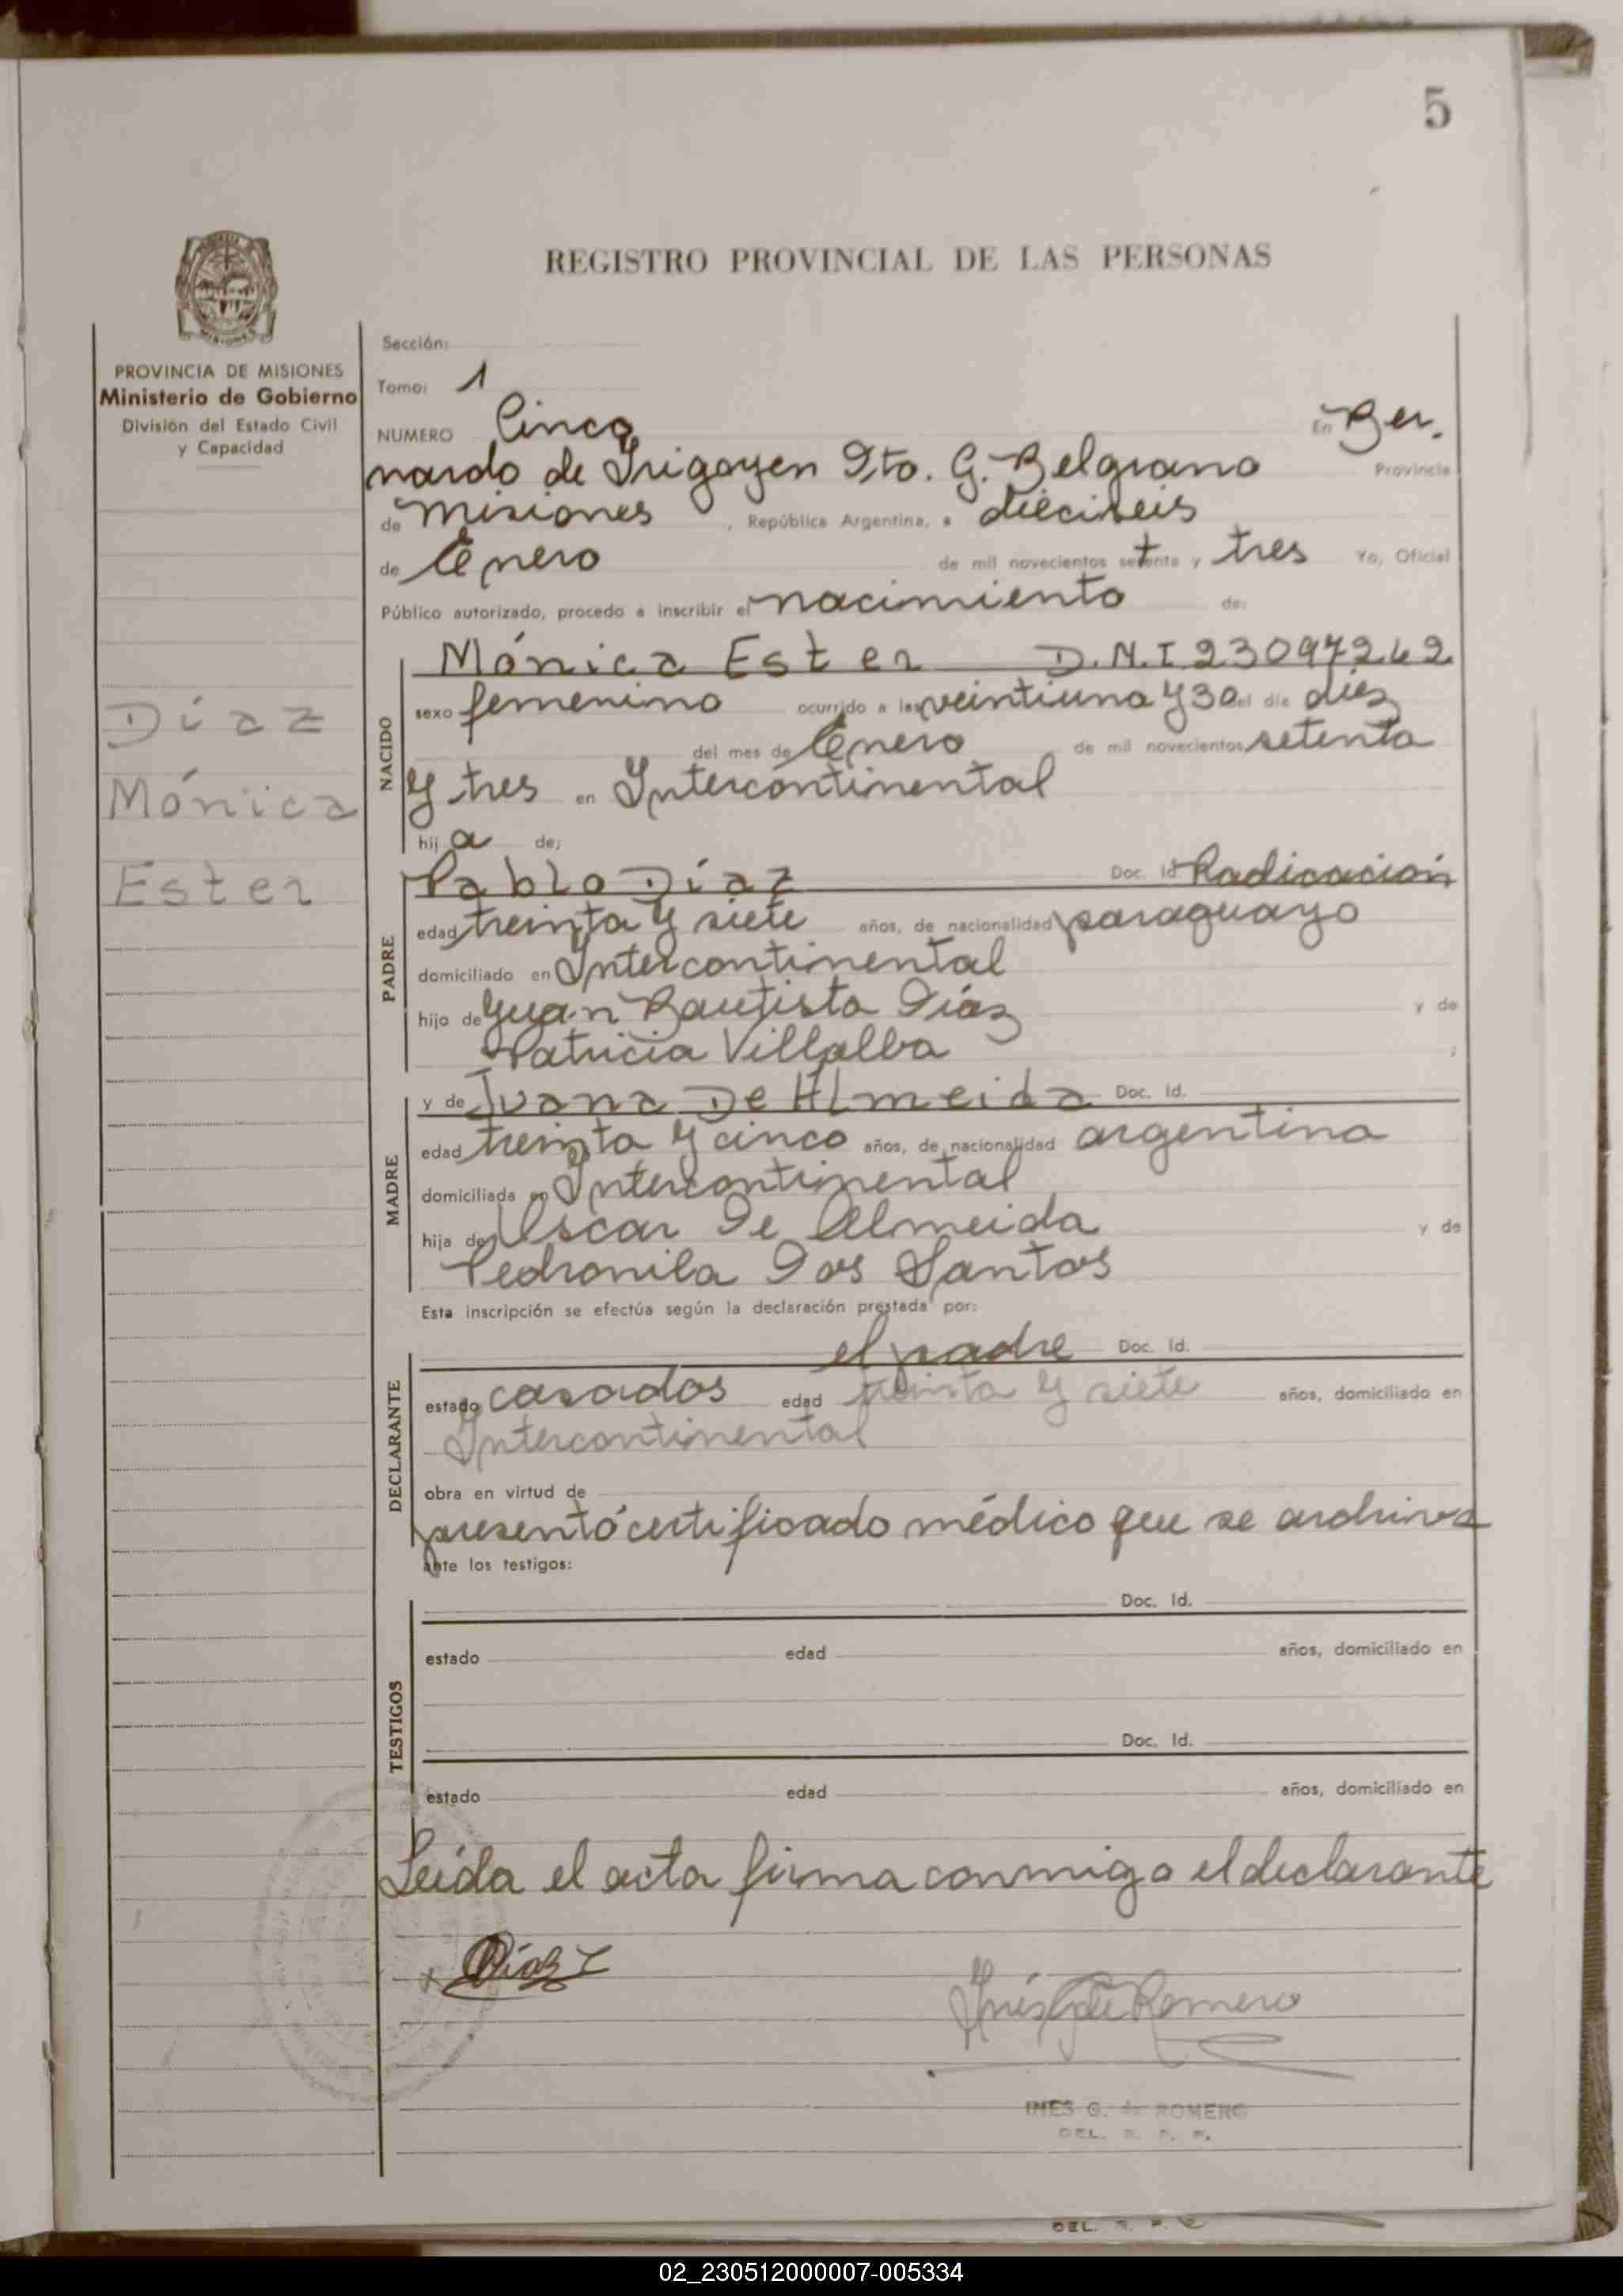 5
REGISTRO PROVINCIAL DE LAS PERSONAS
PROVINCIA DE MISIONES
Ministerio de Gobierno
División del Estado Civil
y Capacidad
Díaz
Mónica
Ester
Sección:
Tomo: 1
NUMERO Cinco En Ber.
nardo de Irigoyen Dto. G. Belgrano Provincia
de Misiones, República Argentina, a dieciseis
de Enero de mil novecientos setenta y tres Yo, Oficial
Público autorizado, procedo a inscribir el nacimiento de:
NACIDO
Mónica Ester D.N.I 23097262
sexo femenino ocurrido a las veintiuna y 30 del día diez
del mes de Enero de mil novecientos setenta
y tres en Intercontinental
hij a de:
PADRE
Pablo Díaz Doc. Id. Radicación
edad treinta y siete años, de nacionalidad paraguayo
domiciliado en Intercontinental
hijo de Juan Bautista Díaz y de
Patricia Villalba ;
MADRE
y de Juana De Almeida Doc. Id.
edad treinta y cinco años, de nacionalidad argentina
domiciliada en Intercontinental
hija de Oscar De Almeida y de
Pedronila Dos Santos
Esta inscripción se efectúa según la declaración prestada por:
DECLARANTE
el padre Doc. Id.
estado casados edad treinta y siete años, domiciliado en
Intercontinental
obra en virtud de
presentó certificado médico que se archiva
ante los testigos:
TESTIGOS
Doc. Id.
estado edad años, domiciliado en
Doc. Id.
estado edad años, domiciliado en
Leída el acta firma conmigo el declarante
x Díaz
Inés G de Romero
INES G. de ROMERO
DEL. R. P. P.
DEL. R. P.
02_230512000007-005334